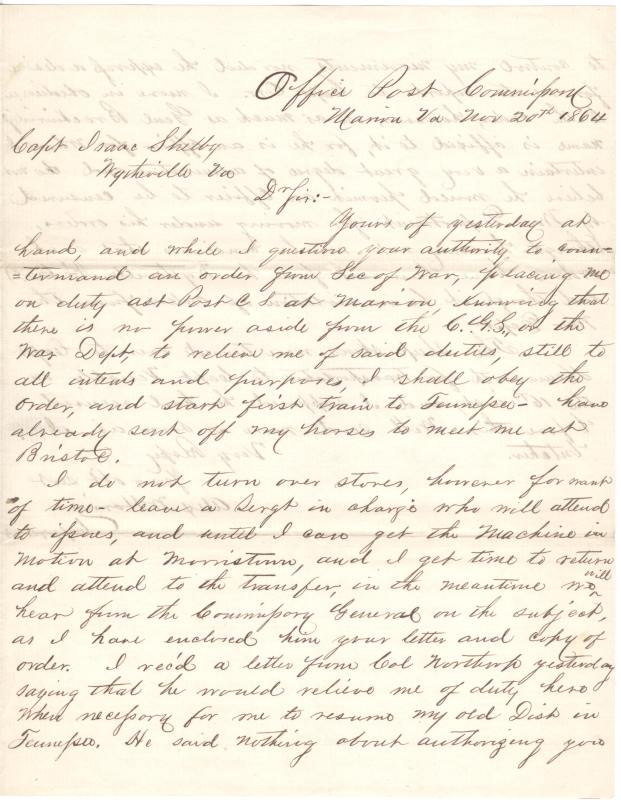 Office Post Commissary
Marion Va Nov 20th 1864
Capt Isaac Shelby
Wytheville Va
Dr Sir:-
Yours of yesterday at
hand, and while I question your authority to coun=
=termand an order from Sec of War, placing me
on duty as Post C.S. at Marion, knowing that
there is no power aside from the C.G.S., or the
War Dept. to relieve me of said duties, still to
all intents and purposes, I shall obey the
order, and start first train to Tennessee - have
already sent off my horses to meet me at
Bristol.
I do not turn over stores, however for want
of time - leave a Sergt in charge who will attend
to issues, and until I can get the Machine in
Motion at Morristown, and I get time to return
and attend to the transfer, in the meantime we will
hear from the Commissary General on the subject,
as I have enclosed him your letter and copy of
order. I rec'd a letter from Col Northrop yesterday
saying that he would relieve me of duty here
When necessary for me to resume my old Dist in
Tennessee. He said nothing about authorizing you